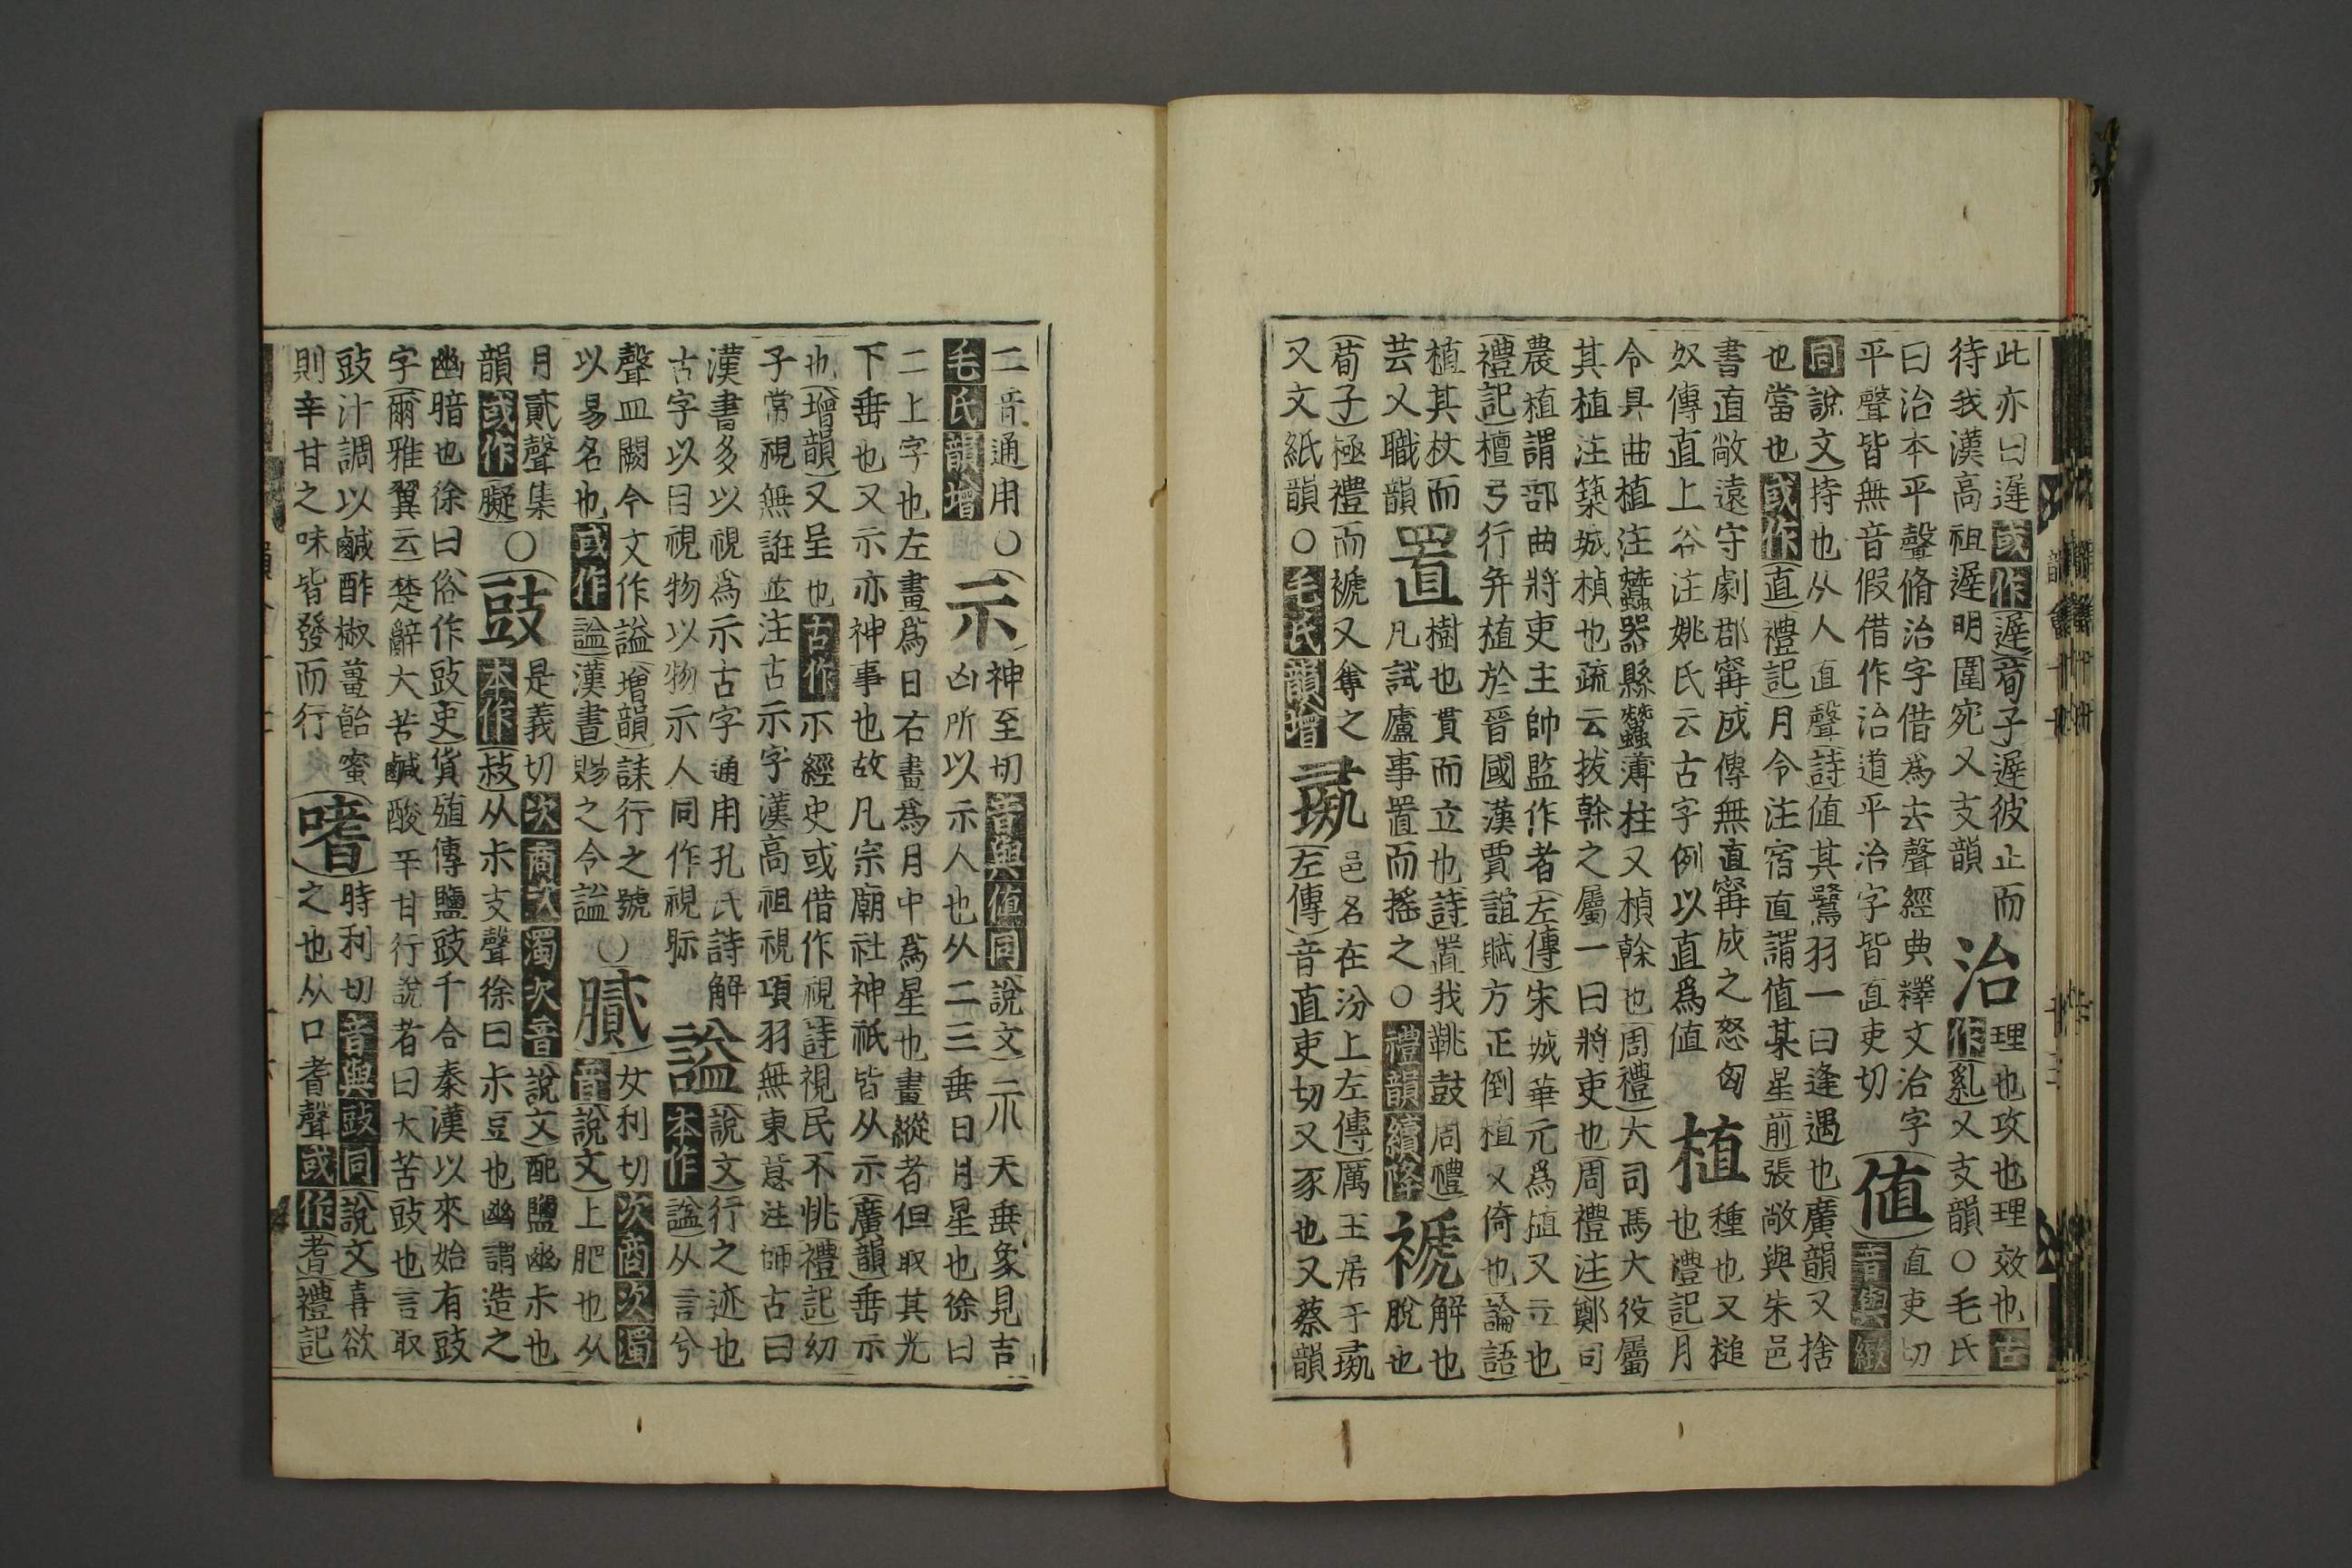 此亦曰遟或作遲荀子遲彼止而
待我漢高祖遲明圍宛又支韻
治
理也攻也理效也古
作乿又支韻○毛氏
曰治本平聲脩治字借爲去聲經典釋文治字
平聲皆無音假借作治道平治字皆直吏切
值
直吏切
音與緻
同說文持也从人直聲詩值其鷺羽一曰逢遇也廣韻又捨
也當也或作直禮記月令注宿直謂值某星前張敞與朱邑
書直敞遠守劇郡甯成傳無直甯成之怒匈
奴傳直上谷注姚氏云古字例以直爲值
植
種也又槌
也禮記月
令具曲植注蠶器縣蠶薄柱又楨榦也周禮大司馬大役屬
其植注築城楨也疏云拔榦之屬一曰將吏也周禮注鄭司
農植謂部曲將吏主帥監作者左傳宋城華元爲植又立也
禮記檀弓行弁植於晉國漢賈誼賦方正倒植又倚也論語
植其杖而
芸又職韻
置
樹也貫而立也詩置我鞉鼓周禮
凡試廬事置而搖之○禮韻續降
褫
解也
脫也
荀子極禮而褫又奪之
又文紙韻○毛氏韻增
彘
邑名在汾上左傳厲王居于彘
左傳音直吏切又豕也又蔡韻
二音通用○
毛氏韻增
示
神至切音與值同說文示天垂象見吉
凶所以示人也从二三垂日月星也徐曰
二上字也左畫爲日右畫爲月中爲星也畫縱者但取其光
下垂也又示亦神事也故凡宗廟社神祇皆从示廣韻垂示
也增韻又呈也古作不經史或借作視詩視民不恌禮記幼
子常視無誑並注古示字漢高祖視項羽無東意注師古曰
漢書多以視爲示古字通用孔氏詩解
古字以目視物以物示人同作視眎
謚
說文行之迹也
本作諡从言兮
聲皿闕今文作謚增韻誄行之號
以易名也或作謚漢書賜之令謚
○
膩
女利切次商次濁
音說文上肥也从
月貳聲集
韻或作𦡲
○
豉
是義切次商次濁次音說文配鹽幽尗也
本作䜴从尗支聲徐曰尗豆也幽謂造之
幽暗也徐曰俗作豉史貨殖傳鹽豉千合秦漢以來始有豉
字爾雅翼云楚辭大苦鹹酸辛甘行說者曰大苦豉也言取
豉汁調以鹹酢椒薑飴蜜
則辛甘之味皆發而行
嗜
時利切音與豉同說文喜欲
之也从口耆聲或作耆禮記